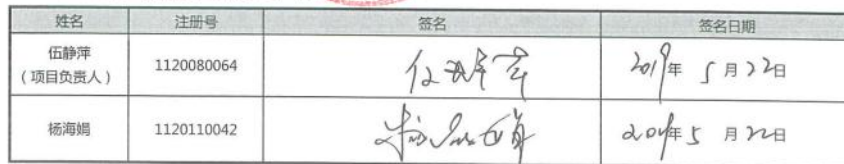 姓名 注册号 签名 签名日期
伍静萍
（项目负责人） 1120080064 伍静萍 2019年 5月22日
杨海娟 1120110042 杨海娟 2019年5月22日